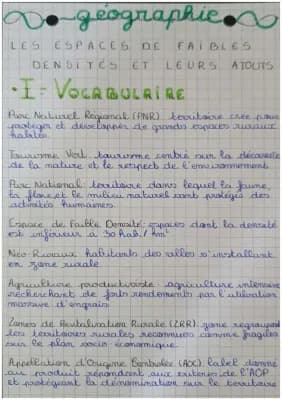 géographie
LES ESPACES DE FAIBLES
DENSITÉS ET LEURS ATOUTS
I - VOCABULAIRE
Parc Naturel Régional (PNR): territoire crée pour
protéger et développer de grands espaces ruraux
habités.
Tourisme Vert: tourisme centré sur la découverte
de la nature et le respect de l'environnement
Parc National: territoire dans lequel la faune,
la flore et le milieu naturel sont protégés des
activités humaines.
Espace de Faible Densité: espaces dont la densité
est inférieur à 30 hab./km²
Néo-Ruraux: habitants des villes s'installant
en zone rurale.
Agriculture productiviste: agriculture intensive
recherchant de forts rendements par l'utilisation
massive d'engrais.
Zones de Revitalisation Rurale (ZRR): zone regroupant
les territoires ruraux reconnues comme fragiles
sur le plan socio-économique.
Appellation d'Origine Contrôlée (AOC): label donné
au produit répondant aux critères de l'AOP
et protégeant la dénomination sur le territoire